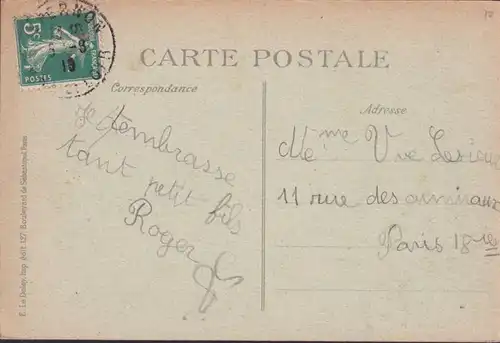 VERNON
5c
POSTES
CARTE POSTALE
Correspondance
Adresse
Je t'embrasse
tant petit fils
Roger
Mé me Vve Lesieur
11 rue des animaux
Paris 18
E. Le Deley, Imp. édit 127, Boulevard de Sébastopol, Paris